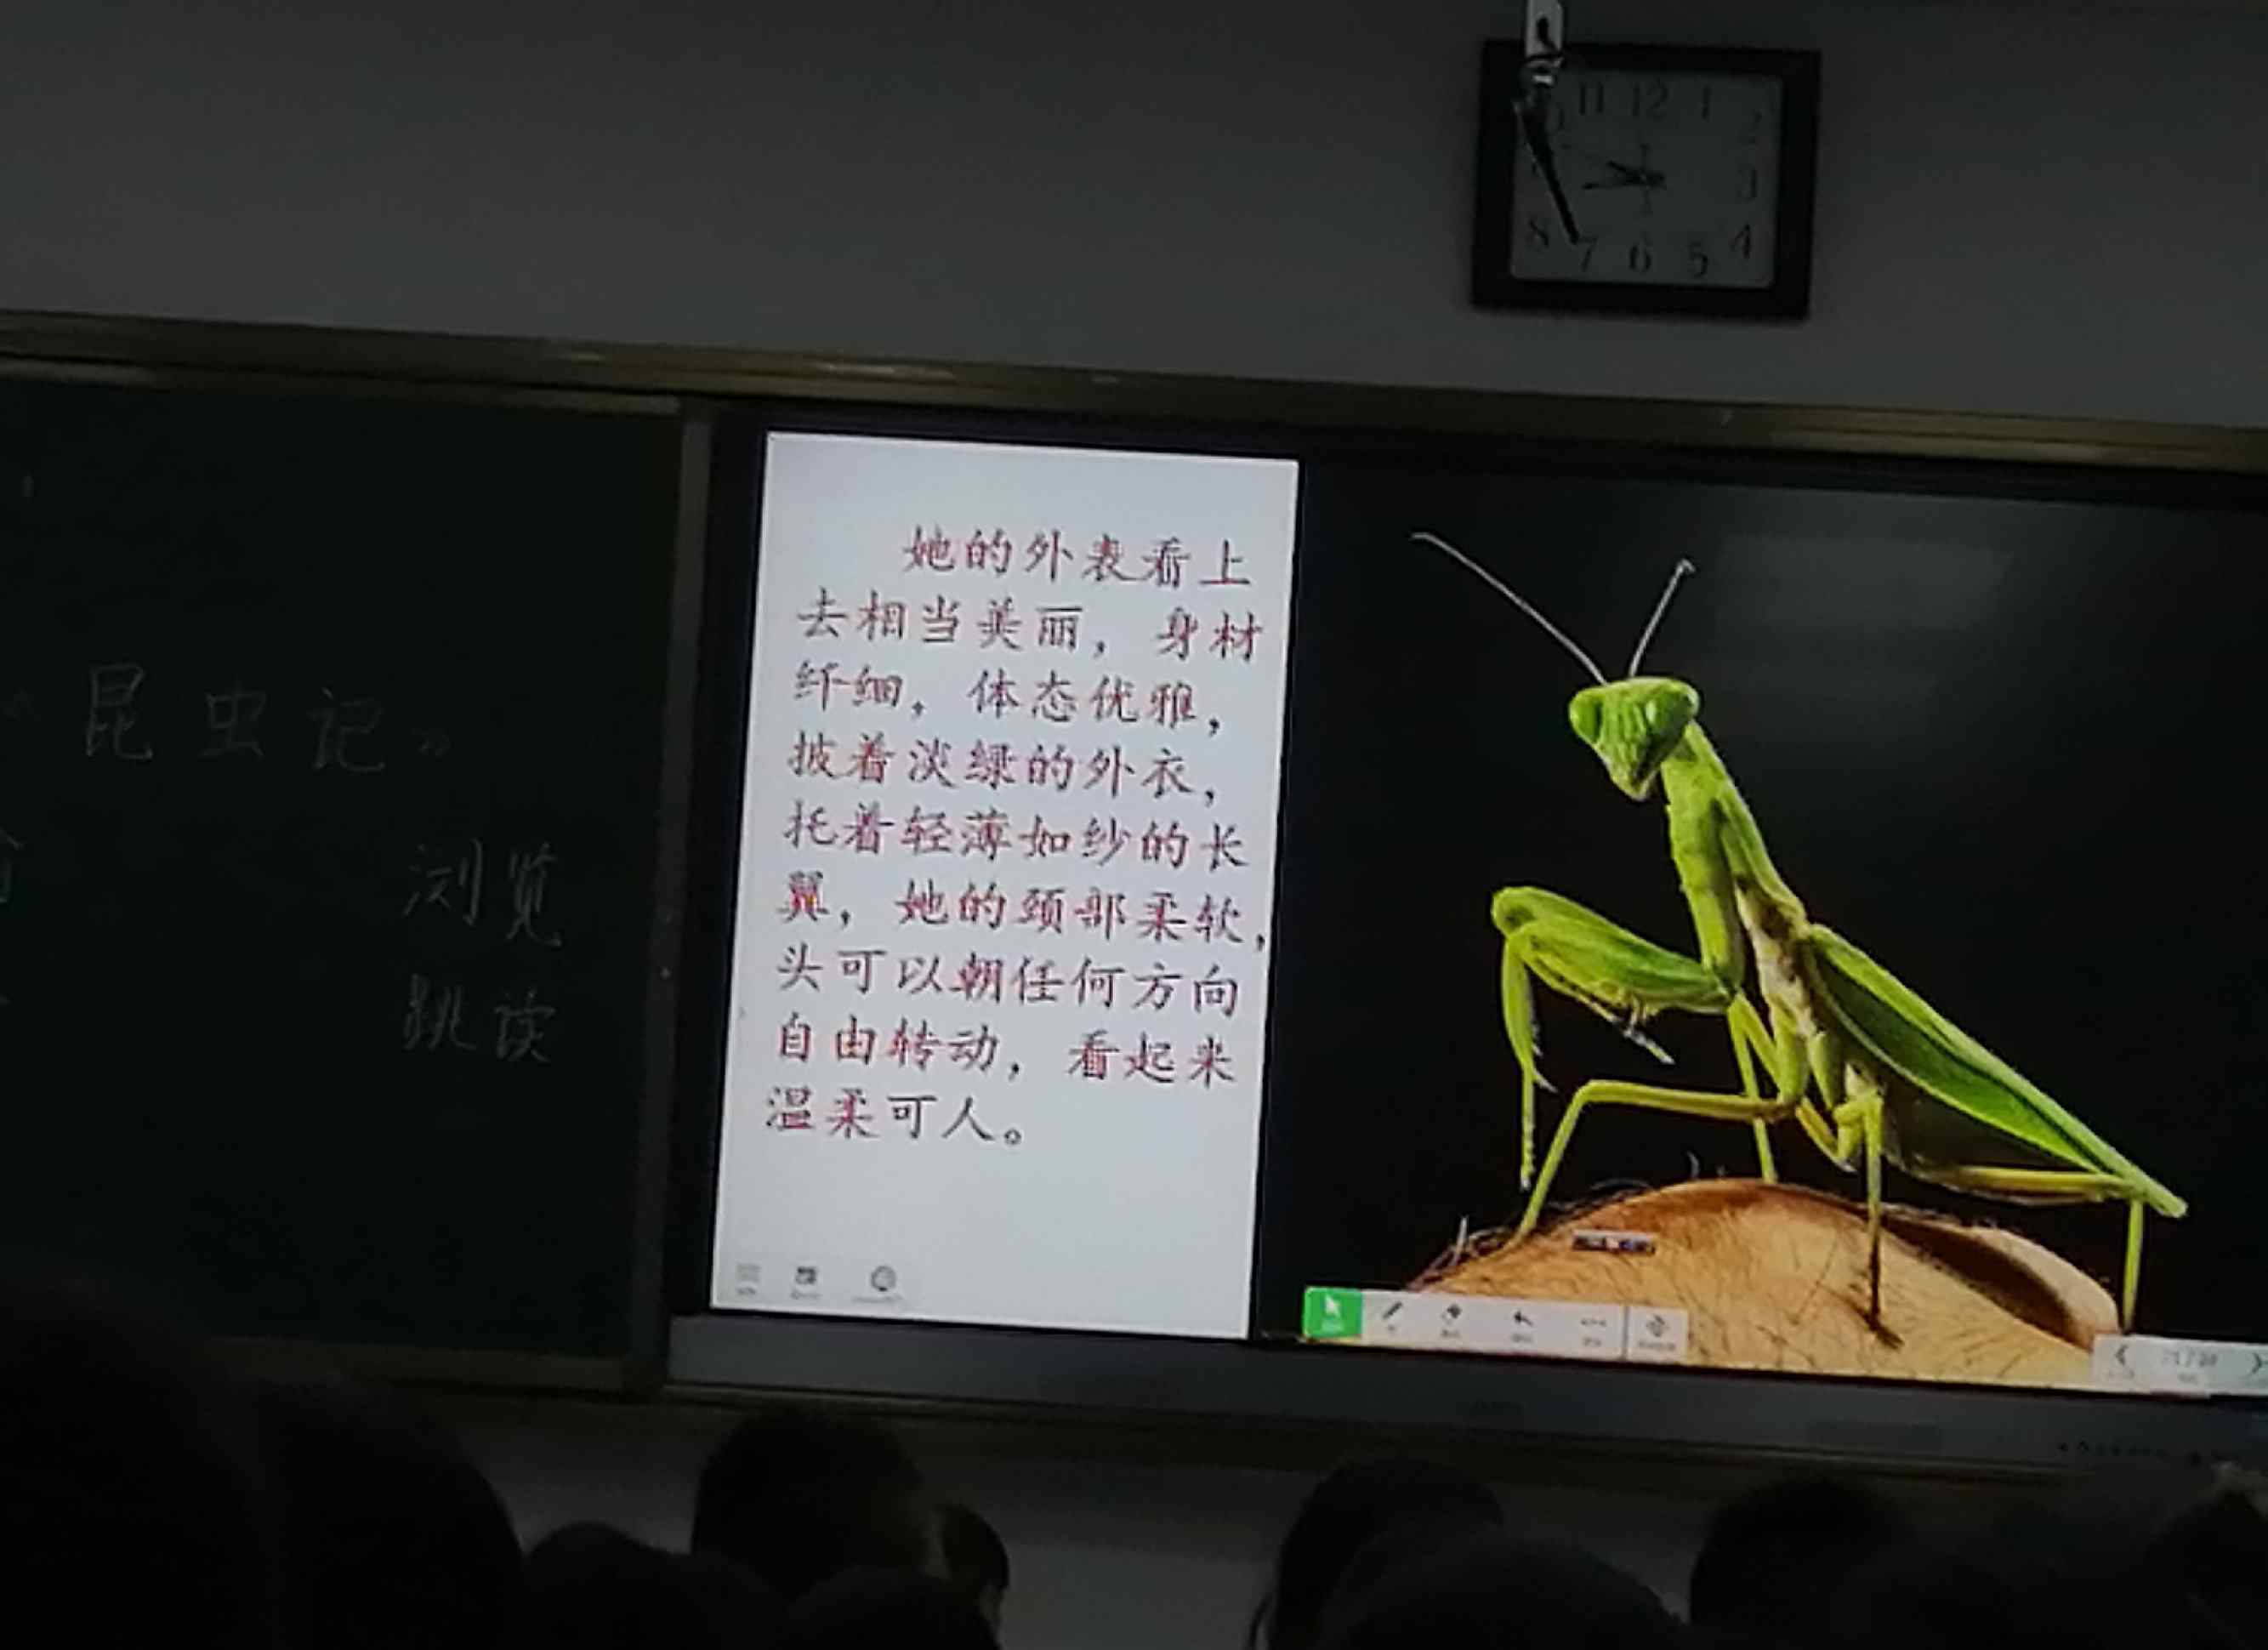 11 12 1
2
3
8 4
7 6 5
昆虫记》
浏览
跳读
她的外表看上
去相当美丽，身材
纤细，体态优雅，
披着淡绿的外衣，
托着轻薄如纱的长
翼，她的颈部柔软，
头可以朝任何方向
自由转动，看起来
温柔可人。